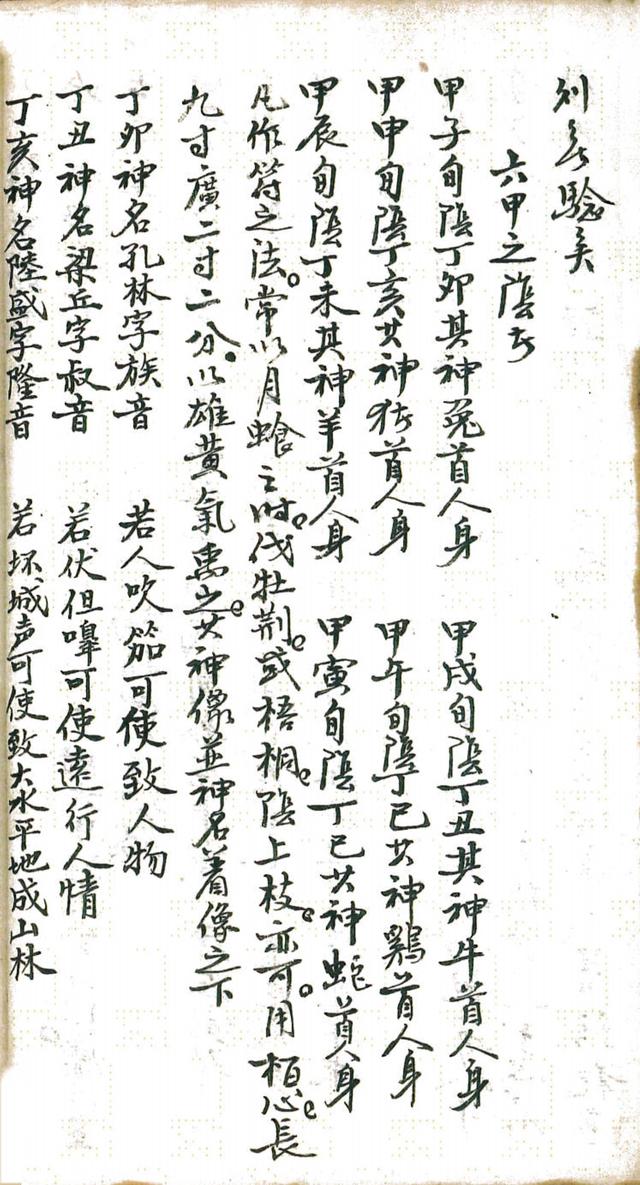 則無驗矣
六甲之陰者
甲子旬陰丁卯其神兎首人身 甲戌旬陰丁丑其神牛首人身
甲申旬陰丁亥其神猪首人身 甲午旬陰丁巳其神鷄首人身
甲辰旬陰丁未其神羊首人身 甲寅旬陰丁巳其神蛇首人身
凡作符之法。常以月蝕之时。伐牡荆。或梧桐。陰上枝。亦可。用栢心。長
九寸廣二寸二分。以雄黃氣畫之。其神像並神名着像之下
丁卯神名孔林字族音 若人吹笳可使致人物
丁丑神名梁丘字叔音 若伏但嘷可使遠行人情
丁亥神名陸盛字隆音 若坏城声可使致大水平地成山林